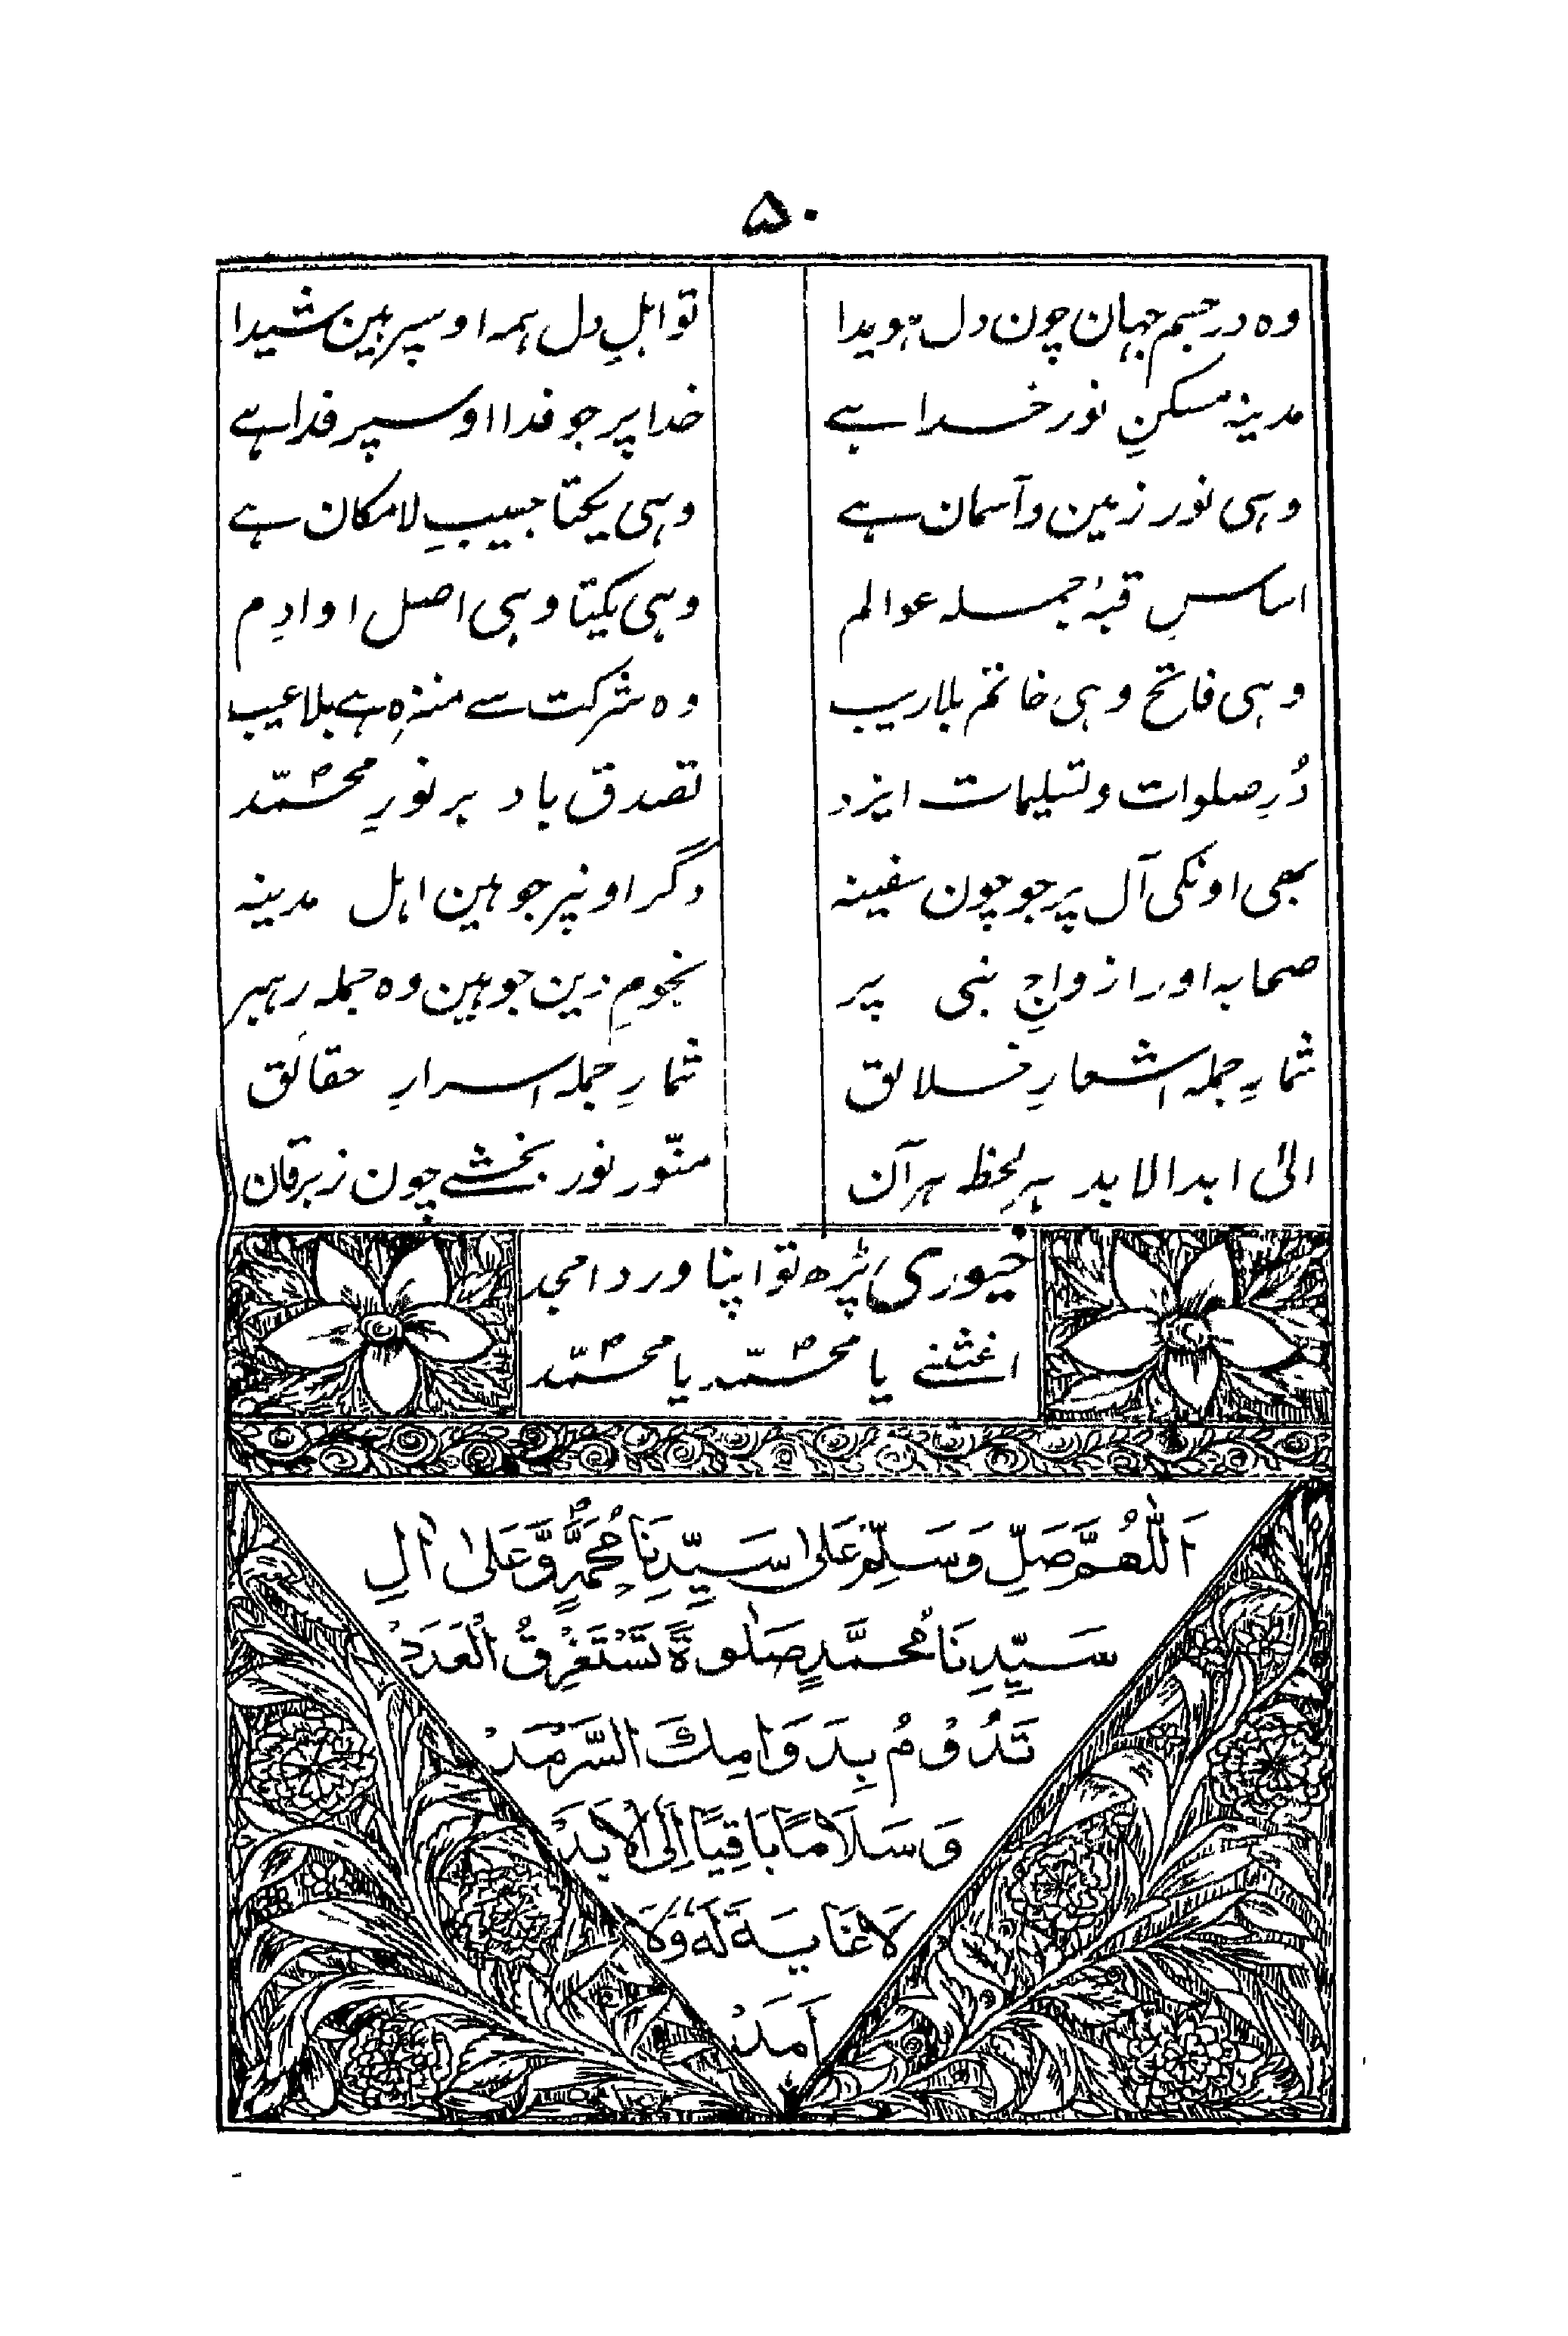 ۵۰
وہ در جسم جہان چون دل ہویدا
تو اہلِ دل ہمہ اوسپر ہین شیدا
مدینہ مسکنِ نور خدا ہے
خدا پر جو فدا اوسپر فدا ہے
وہی نور زمین و آسمان ہے
وہی یکتا حبیبِ لامکان ہے
اساسِ قبۂ جملہ عوالم
وہی یکتا وہی اصل اوادِم
وہی فاتح وہی خاتم بلاریب
وہ شرکت سے منزہ ہے بلاعیب
دُرِ صلوات و تسلیمات ایزد
تصدق باد بر نورِ محمّد ؐ
بھی اونکی آل پر جو چون سفینہ
دگر اونپر جو ہین اہل مدینہ
صحابہ اور ازواجِ نبی پر
نجومِ دین جو ہین وہ جملہ رہبر
شمارِ جملہ اشعارِ خلائق
شمارِ جملہ اسرارِ حقائق
الیٰ ابد الابد ہر لحظ ہر آن
منّور نور بخشے چون زبرقان
خیوری پڑھ تو اپنا ورد امجد
اغثنے یا محمّد ؐ یا محمّد ؐ
اَللّٰهُمَّ صَلِّ وَسَلِّمْ عَلىٰ سَيِّدِنَا مُحَمَّدٍ ؐ وَّعَلىٰ اٰلِ
سَيِّدِنَا مُحَمَّدٍ صَلٰوةً تَسْتَغْرِقُ الْعَدَدْ
تَدُوْمُ بِدَوَامِكَ السَّرْمَدْ
وَسَلَامًا بَاقِيًا اِلَى الْاَبَدْ
لَا غَايَةَ لَهٗ وَلَا
اَمَدْ